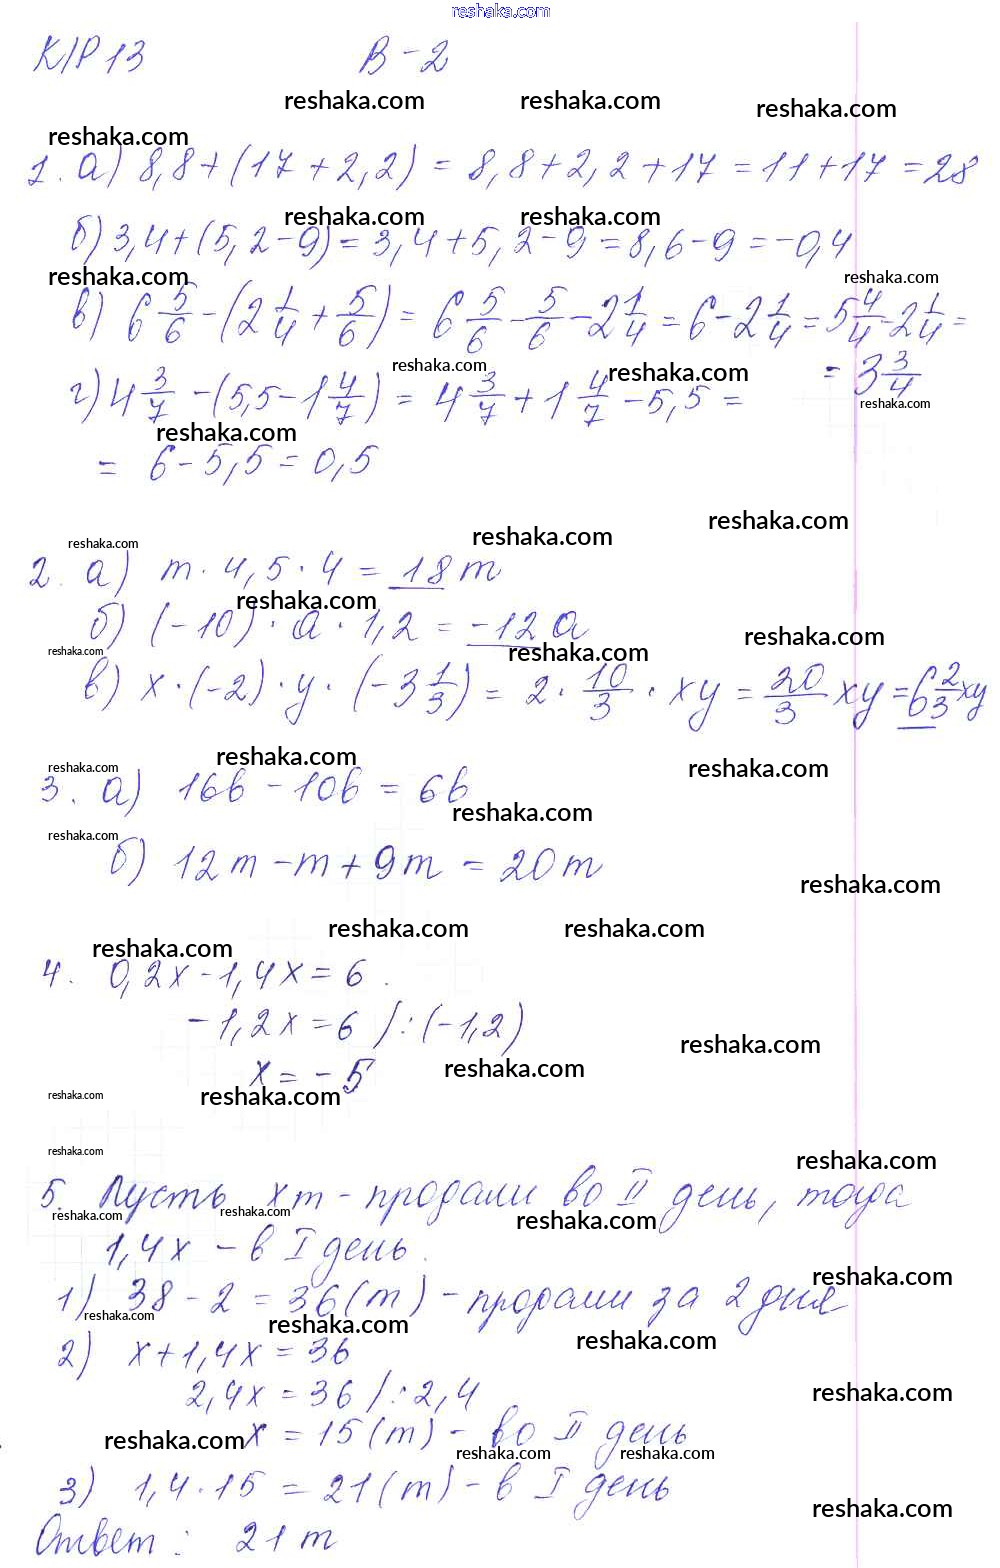 reshaka.com
К/Р 13 В-2
reshaka.com reshaka.com reshaka.com
reshaka.com
1. а) 8,8+(17+2,2) = 8,8+2,2+17 = 11+17 = 28
reshaka.com reshaka.com
б) 3,4+(5,2-9) = 3,4+5,2-9 = 8,6-9 = -0,4
reshaka.com reshaka.com
в) 6 5/6 - (2 1/4 + 5/6) = 6 5/6 - 5/6 - 2 1/4 = 6 - 2 1/4 = 5 4/4 - 2 1/4 =
= 3 3/4
reshaka.com reshaka.com reshaka.com
г) 4 3/7 - (5,5 - 1 4/7) = 4 3/7 + 1 4/7 - 5,5 =
reshaka.com
= 6 - 5,5 = 0,5
reshaka.com reshaka.com reshaka.com
2. а) m · 4,5 · 4 = 18 m
reshaka.com
б) (-10) · a · 1,2 = -12 a
reshaka.com reshaka.com reshaka.com
в) x · (-2) · y · (-3 1/3) = 2 · 10/3 · xy = 20/3 xy = 6 2/3 xy
reshaka.com reshaka.com reshaka.com
3. а) 16b - 10b = 6b
reshaka.com reshaka.com
б) 12m - m + 9m = 20m
reshaka.com
reshaka.com reshaka.com reshaka.com
4. 0,2x - 1,4x = 6.
-1,2x = 6 /:(-1,2)
reshaka.com
x = -5
reshaka.com
reshaka.com reshaka.com
reshaka.com reshaka.com
5. Пусть x т - продали во II день, тогда
reshaka.com reshaka.com reshaka.com
1,4x - в I день.
reshaka.com
1) 38 - 2 = 36 (т) - продали за 2 дня
reshaka.com reshaka.com reshaka.com
2) x + 1,4x = 36
2,4x = 36 /: 2,4
reshaka.com
x = 15 (т) - во II день
reshaka.com reshaka.com reshaka.com
3) 1,4 · 15 = 21 (т) - в I день
reshaka.com
Ответ: 21 т